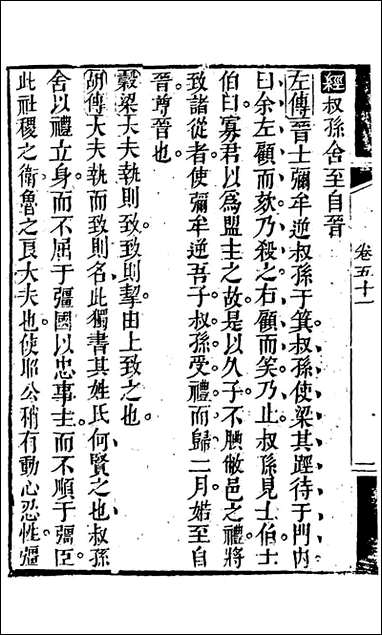 經叔孫舍至自晉
左傳晉士彌牟逆叔孫于箕叔孫使梁其踁待于門內
曰余左顧而欬乃殺之右顧而笑乃止叔孫見士伯士
伯曰寡君以爲盟主之故是以久子不腆敝邑之禮將
致諸從者使彌牟逆吾子叔孫受禮而歸二月婼至自
晉尊晉也
穀梁大夫執則致致則挈由上致之也
胡傳大夫執而致則名此獨書其姓氏何賢之也叔孫
舍以禮立身而不屈于彊國以忠事主而不順于彊臣
此社稷之衛魯之良大夫也使昭公稍有動心忍性彊
卷五十一